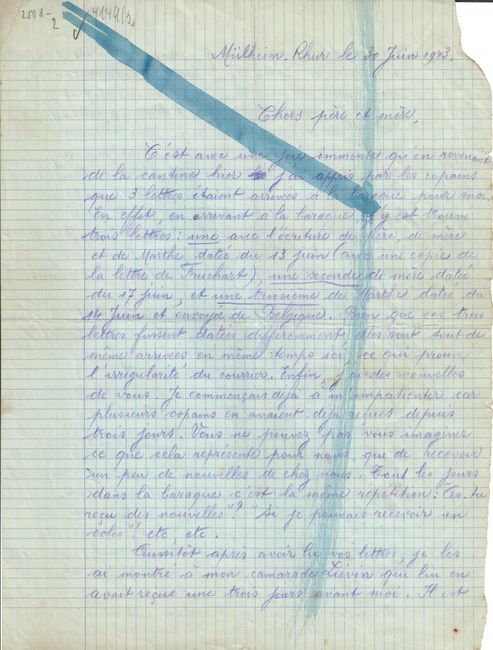 2508-2
4141/2
Mülheim-Rhur le 30 Juin 1943.
Chers père et mère,
C'est avec une joie immense qu'en revenant
de la cantine hier j'ai appris par les copains
que 3 lettres étaient arrivées à la baraque pour moi.
En effet, en arrivant à la baraque j'y est trouvé
trois lettres: une avec l'écriture de père, de mère
et de Marthe daté du 13 juin (avec une copie de
la lettre de Fruchart) une seconde de mère datée
du 17 juin, et une troisième de Marthe daté du
14 Juin et envoyée de Belgique. Bien que ces trois
lettres fussent datées différemment, elles sont tout de
même arrivées en même temps ici, ce qui prouve
l'irrégularité du courrier. Enfin, j'ai des nouvelles
de vous. Je commençais déjà à m'impatienter car
plusieurs copains en avaient déjà reçues depuis
trois jours. Vous ne pouvez pas vous imaginez
ce que cela représente pour nous que de recevoir
un peu de nouvelles de chez nous. Tous les jours
dans la baraque c'est la même répétition: "Es-tu
reçu des nouvelles"? "Si je pouvais recevoir un
colis"! etc, etc.
Aussitôt après avoir lu vos lettres, je les
ai montré à mon camarade Livin qui lui en
avait reçue une trois jours avant moi. Il est